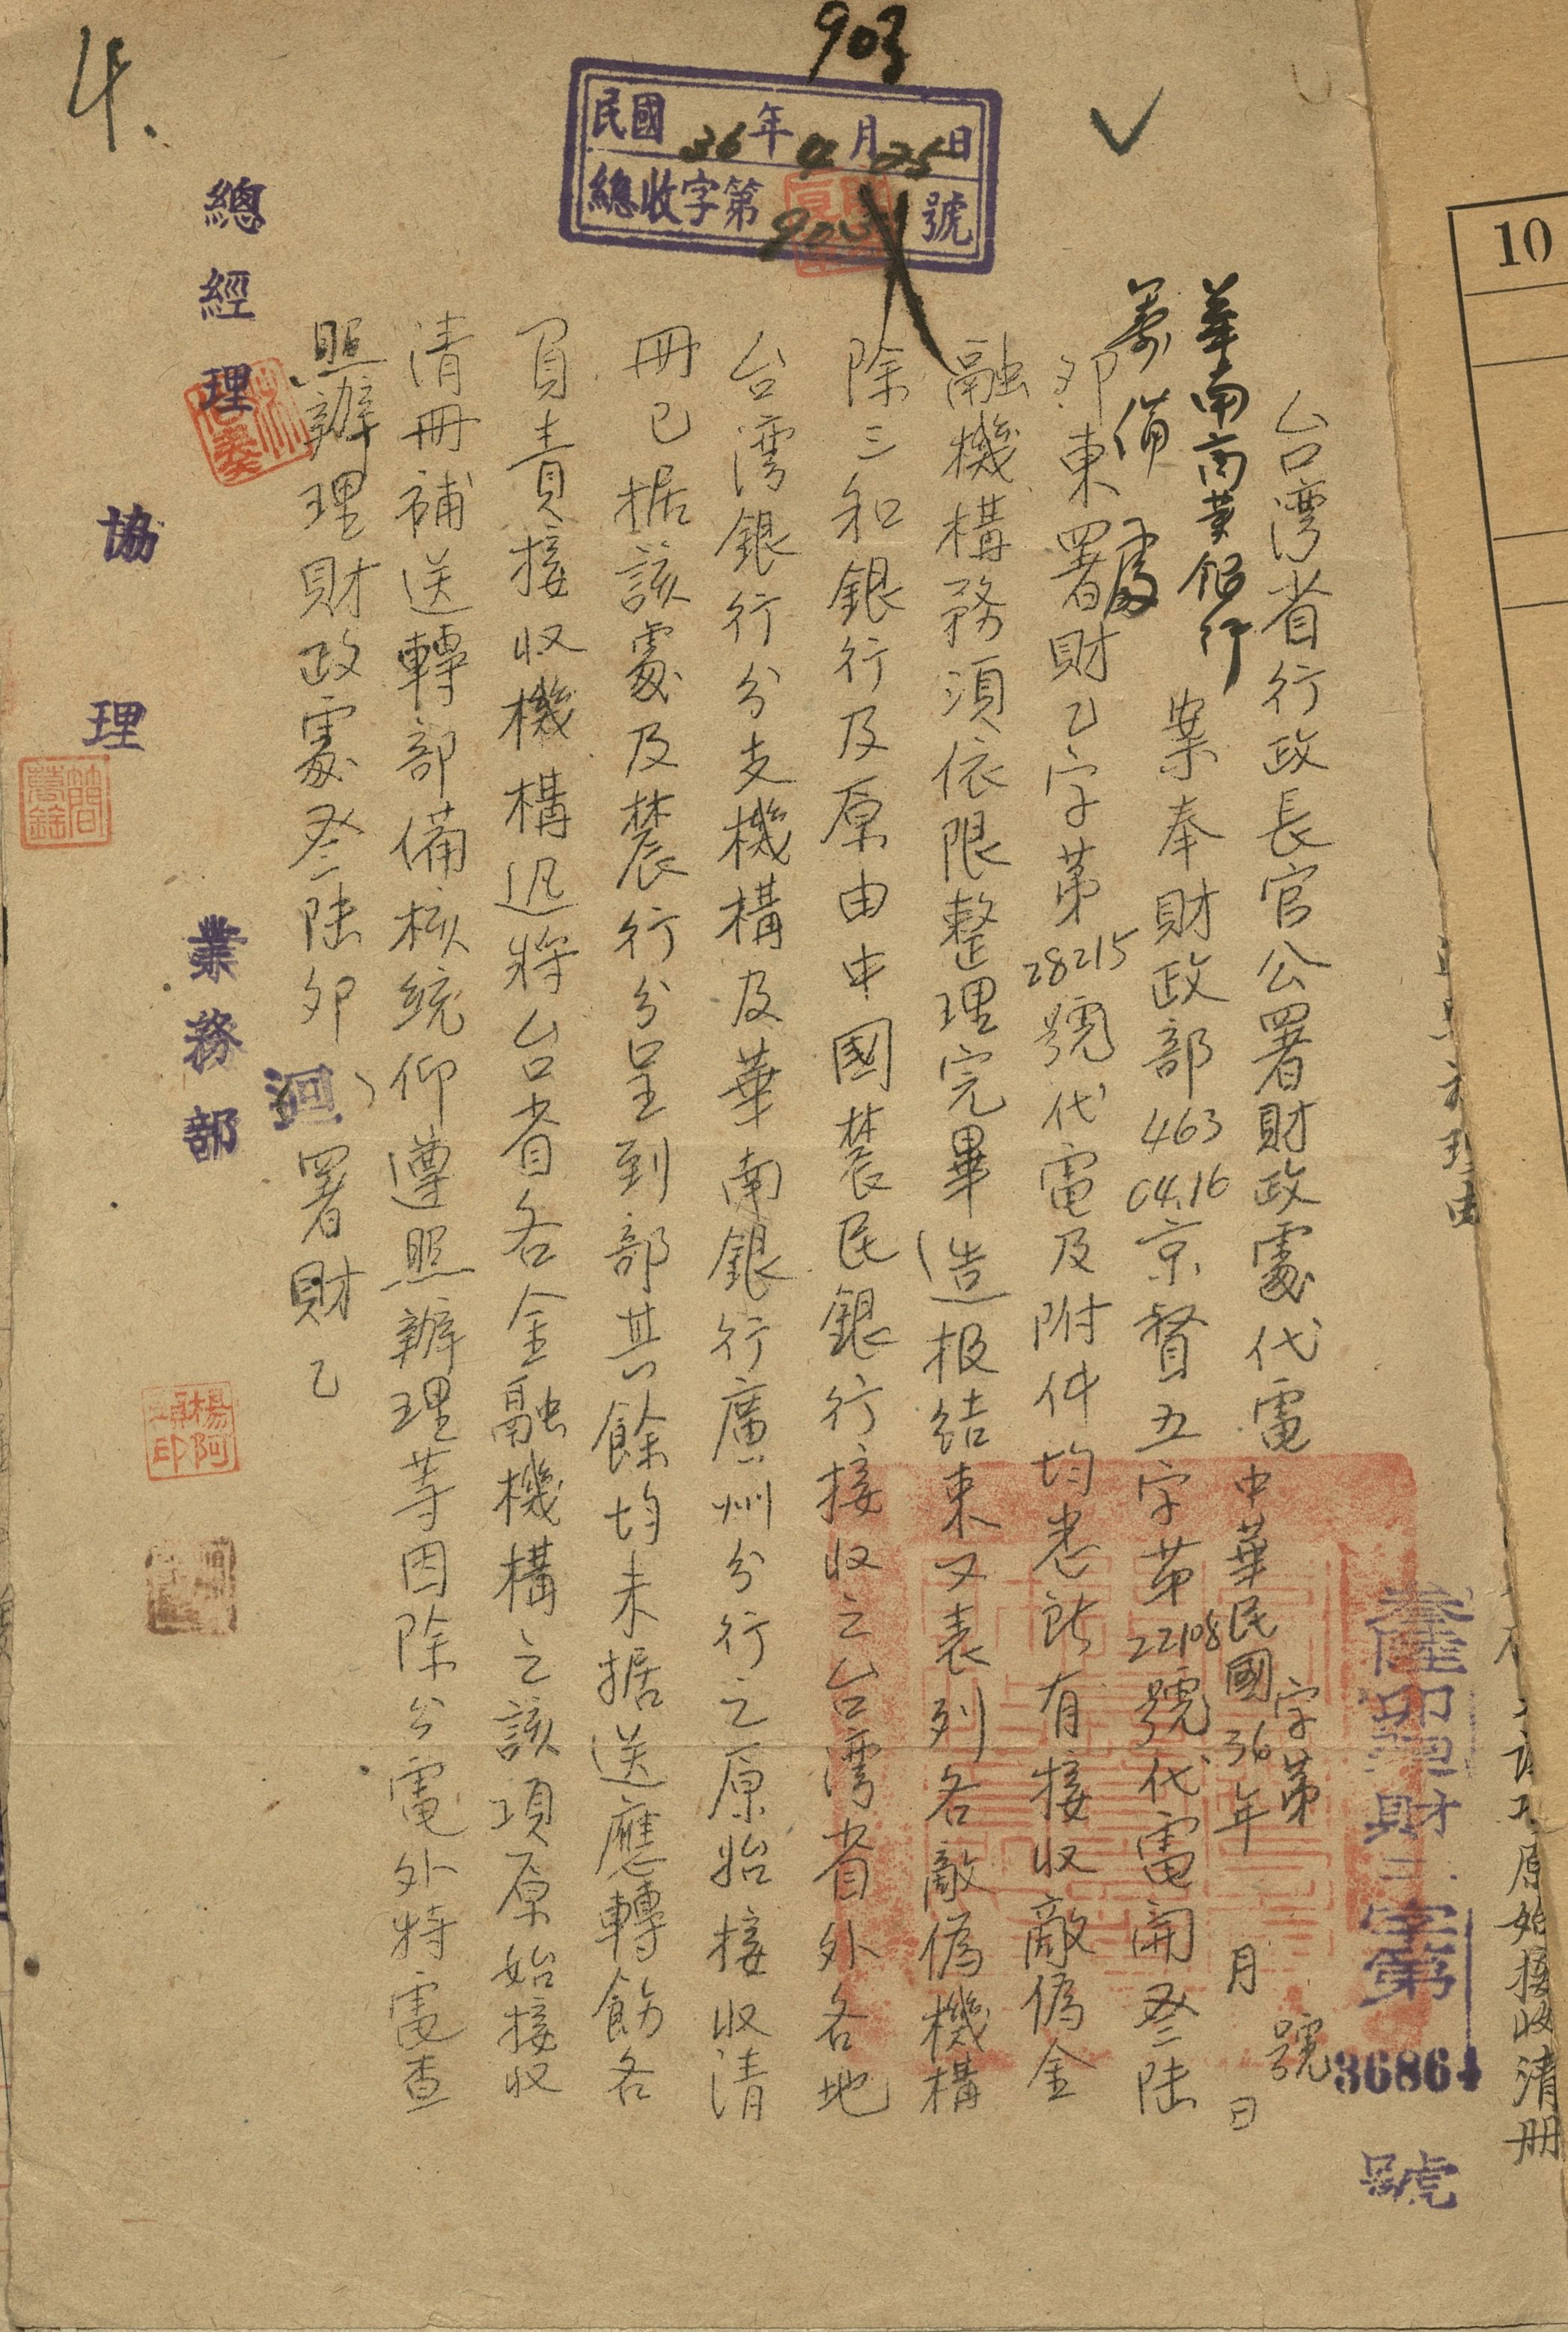 原始接收清册
叁陸卯 財 字第 36864 號
台湾省行政長官公署財政處代電 字第 號
中華民國36年 月 日
華南商業銀行
籌備處
案奉財政部463 04.16京督五字第22108號代電開叁陸
卯東署財乙字第28215號代電及附件均悉所有接收敵偽金
融機構務須依限整理完畢造报結束又表列各敵偽機構
除三和銀行及原由中國農民銀行接收之台湾省外各地
台湾銀行分支機構及華南銀行廣州分行之原始接收清
冊已据該處及農行分呈到部其餘均未据送應轉飭各
負責接收機構迅將台省各金融機構之該項原始接收
清冊補送轉部備核統仰遵照辦理等因除分電外特電查
照辦理財政處叁陸卯 洄 署財乙
90号
民國36年4月25日
總收字第903號
總經理
協理
業務部
楊阿
印
4.
10